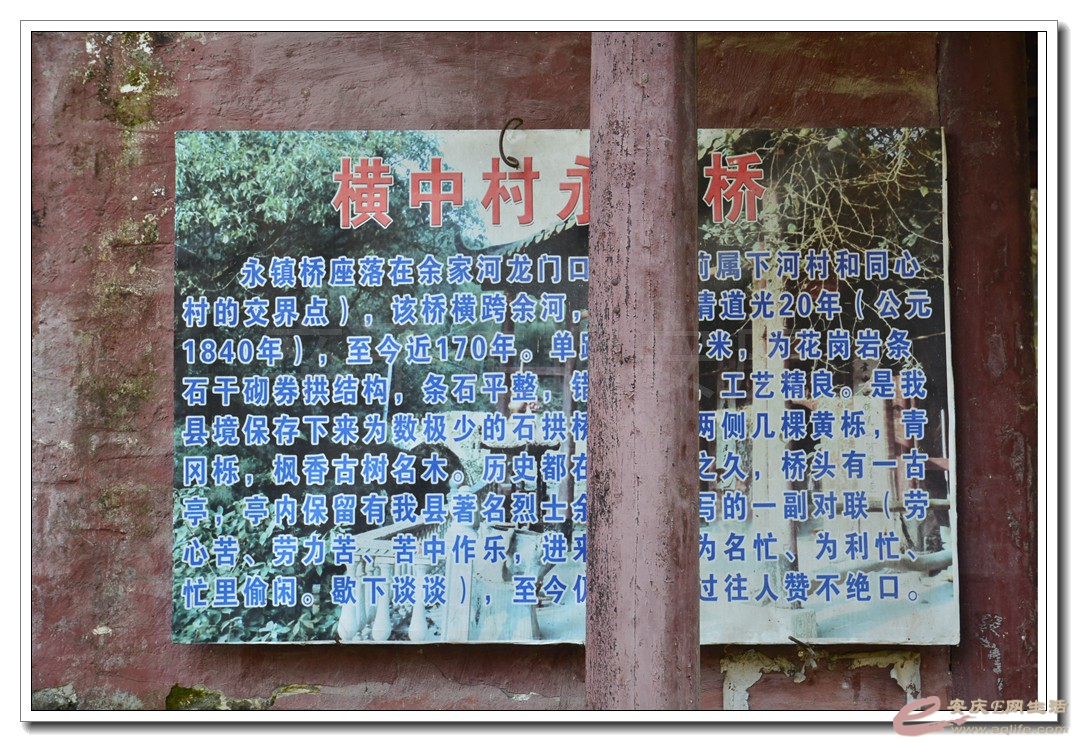 横中村永 桥
永镇桥座落在余家河龙门口 前属下河村和同心
村的交界点），该桥横跨余河， 清道光20年（公元
1840年），至今近170年。单 米，为花岗岩条
石干砌券拱结构，条石平整，错 ，工艺精良。是我
县境保存下来为数极少的石拱桥 两侧几棵黄栎，青
冈栎，枫香古树名木。历史都在 之久，桥头有一古
亭，亭内保留有我县著名烈士余 写的一副对联（劳
心苦、劳力苦、苦中作乐，进来 为名忙、为利忙、
忙里偷闲。歇下谈谈），至今仍 过往人赞不绝口。
安庆E网生活
www.aqlife.com